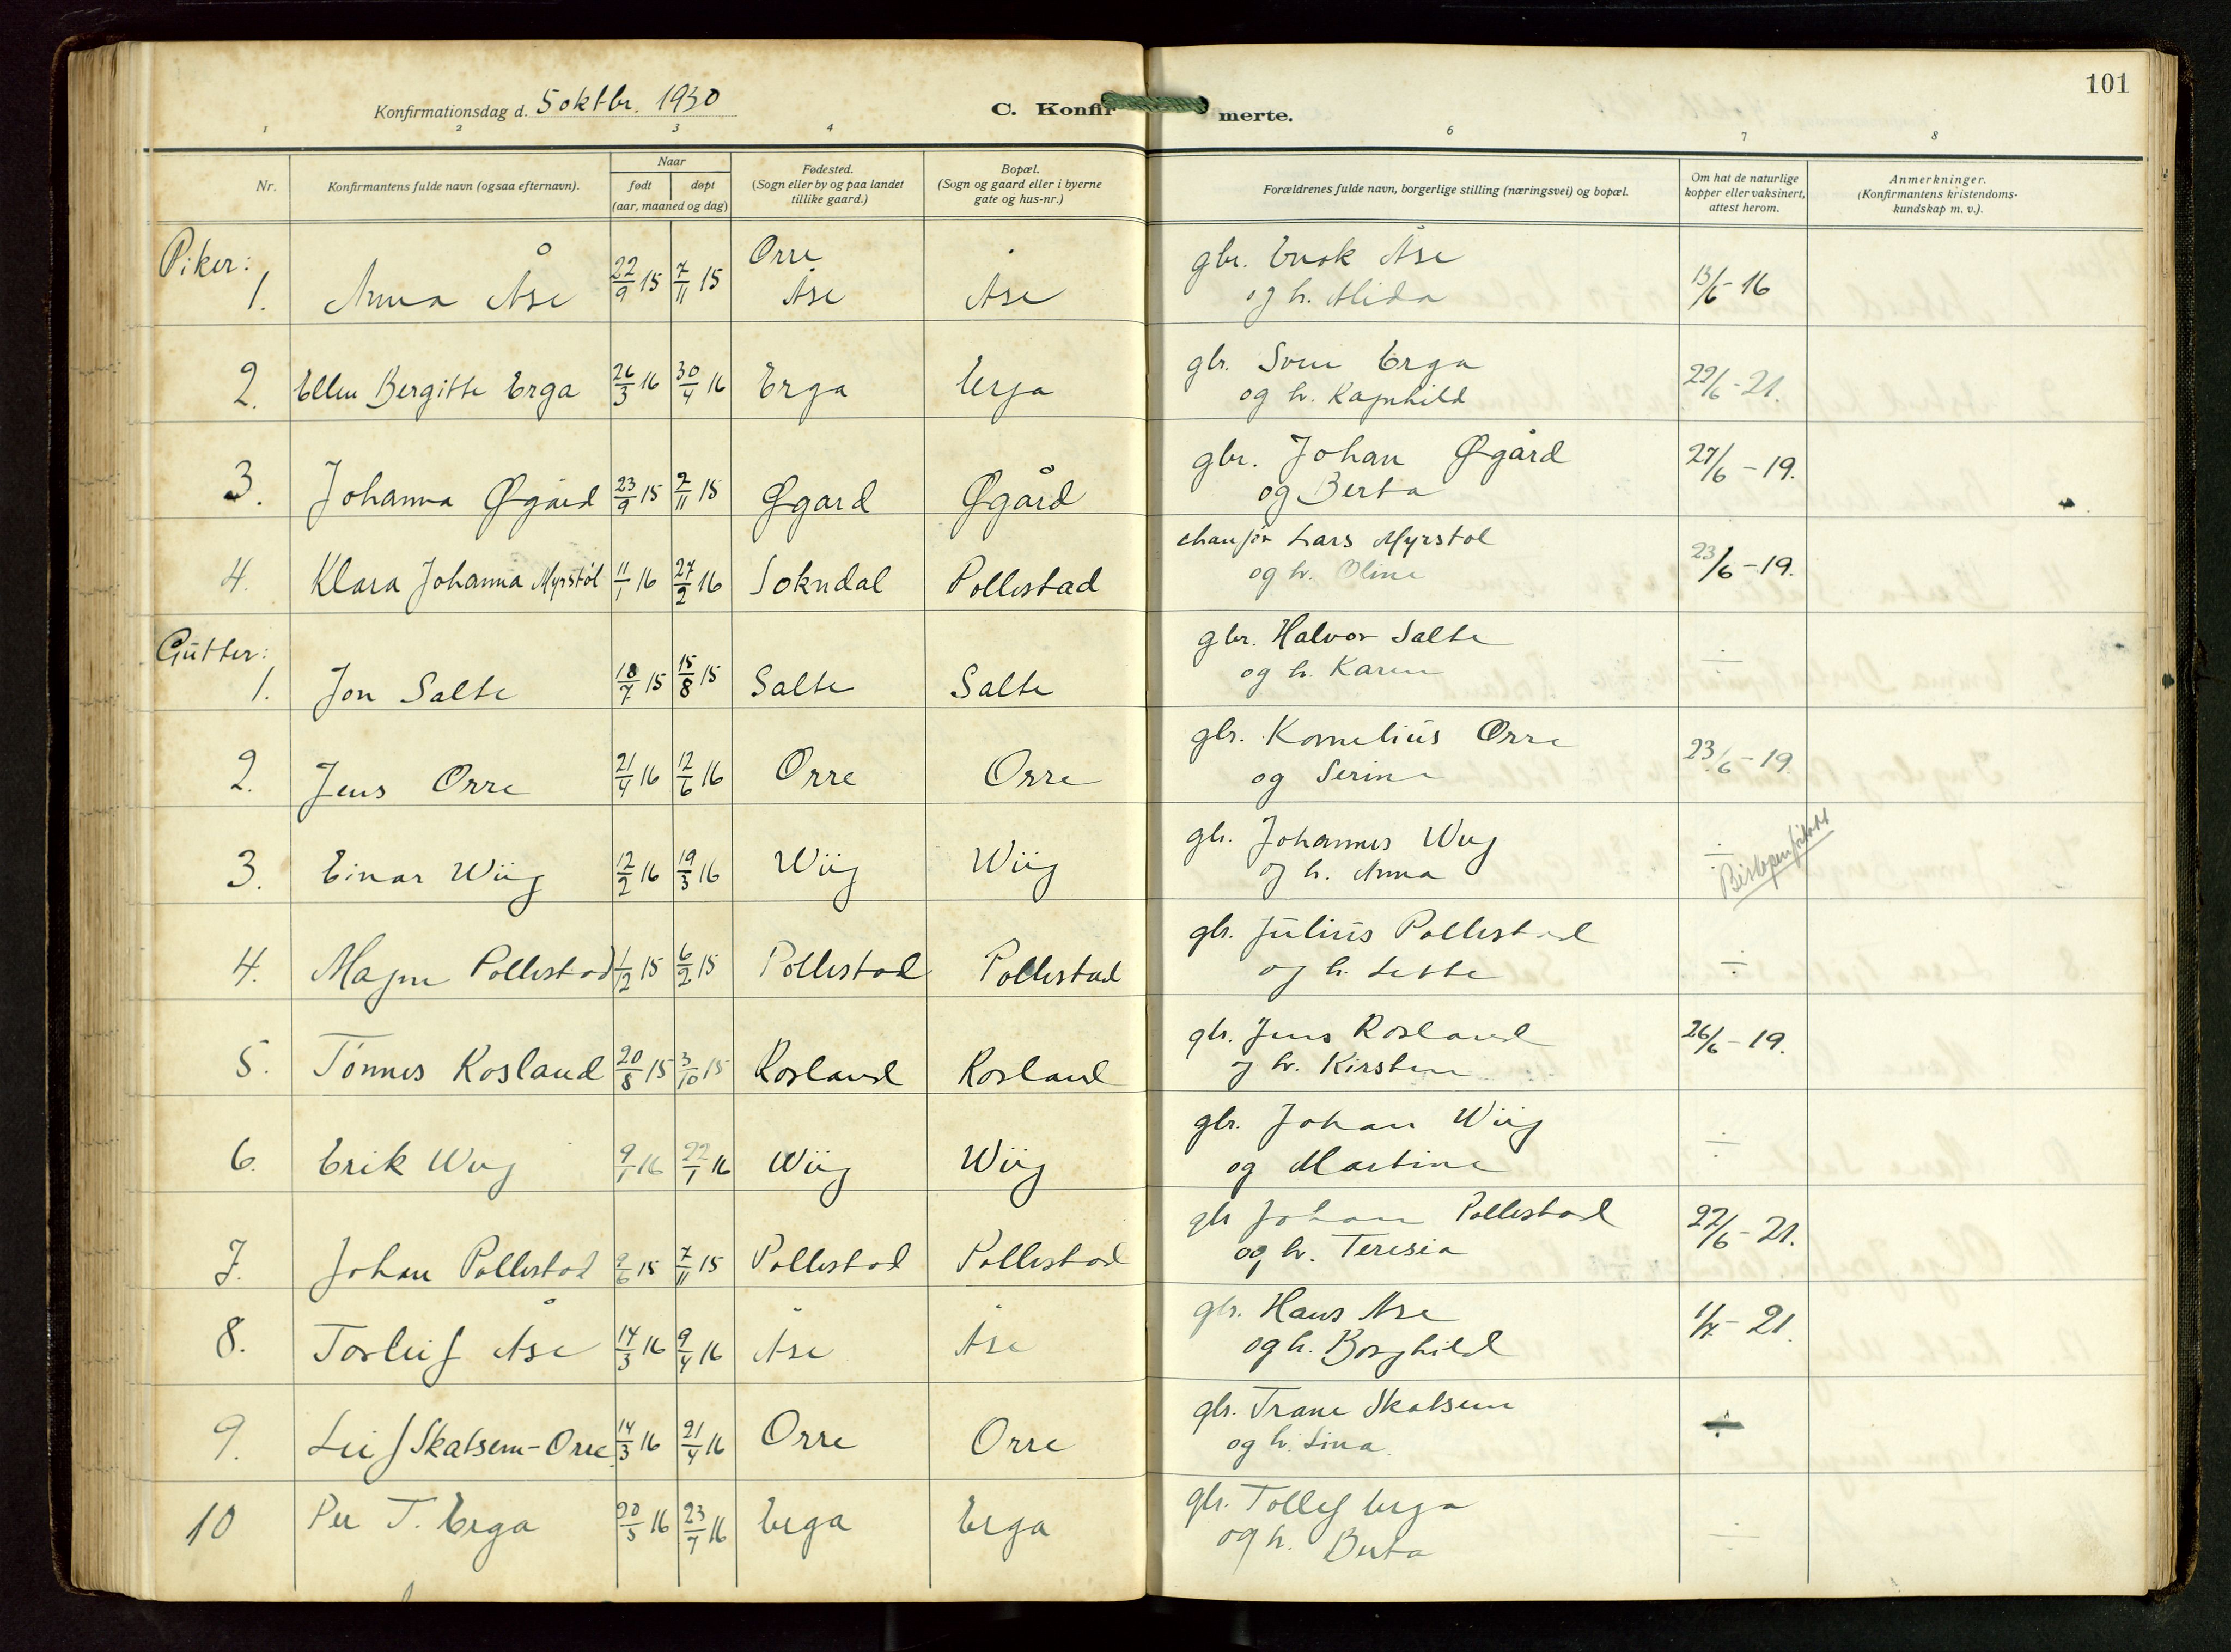 101
Konfirmationsdag d. 5 oktbr. 1930
C. Konfir merte.
1 2 3 4 6 7 8
Nr.
Konfirmantens fulde navn (ogsaa efternavn).
Naar
født døpt
(aar, maaned og dag)
Fødested.
(Sogn eller by og paa landet
tillike gaard.)
Bopæl.
(Sogn og gaard eller i byerne
gate og hus-nr.)
Forældrenes fulde navn, borgerlige stilling (næringsvei) og bopæl.
Om hat de naturlige
kopper eller vaksinert,
attest herom.
Anmerkninger.
(Konfirmantens kristendoms-
kundskap m. v.).
Piker:
1. Anna Åse 22/9 15 7/11 15 Orre Åse Åse
gbr. Enok Åse
og h. Alida
13/6 - 16
2. Ellen Bergitte Erga 26/3 16 30/4 16 Erga Erga
gbr. Sven Erga
og h. Ragnhild
22/6 - 21.
3. Johanna Øgård 23/9 15 2/11 15 Øgard Øgård
gbr. Johan Øgård
og Berta
27/6 - 19.
4. Klara Johanna Myrstøl 11/1 16 27/2 16 Sokndal Pollestad
Lars Myrstøl
og h. Oline
23/6 - 19.
Gutter:
1. Jon Salte 18/7 15 15/8 15 Salte Salte
gbr. Halvor Salte
og h. Karen
÷
2. Jens Orre 21/4 16 12/6 16 Orre Orre
gbr. Kornelius Orre
og Serine
23/6 - 19.
3. Einar Wiig 12/2 16 19/3 16 Wiig Wiig
gbr. Johannes Wiig
og h. Anna
÷
4. Magne Pollestad 1/12 15 6/2 15 Pollestad Pollestad
gbr. Julius Pollestad
og h. Lette
÷
5. Tønnes Rosland 20/8 15 3/10 15 Rosland Rosland
gbr. Jens Rosland
og h. Kirsten
26/6 - 19.
6. Erik Wiig 9/1 16 22/1 16 Wiig Wiig
gbr. Johan Wiig
og Martine
÷
7. Johan Pollestad 9/6 15 7/11 15 Pollestad Pollestad
gbr Johan Pollestad
og h. Teresia
22/6 - 21.
8. Torleif Åse 14/3 16 9/4 16 Åse Åse
gbr. Hans Åse
og h. Borghild
- 21.
9. Leif Skatsem-Orre 14/3 16 21/4 16 Orre Orre
gbr. Trane Skatsem
og h. Lina.
÷
10 Per T. Erga 20/5 16 23/7 16 Erga Erga
gbr. Tollef Erga
og h. Berta
÷